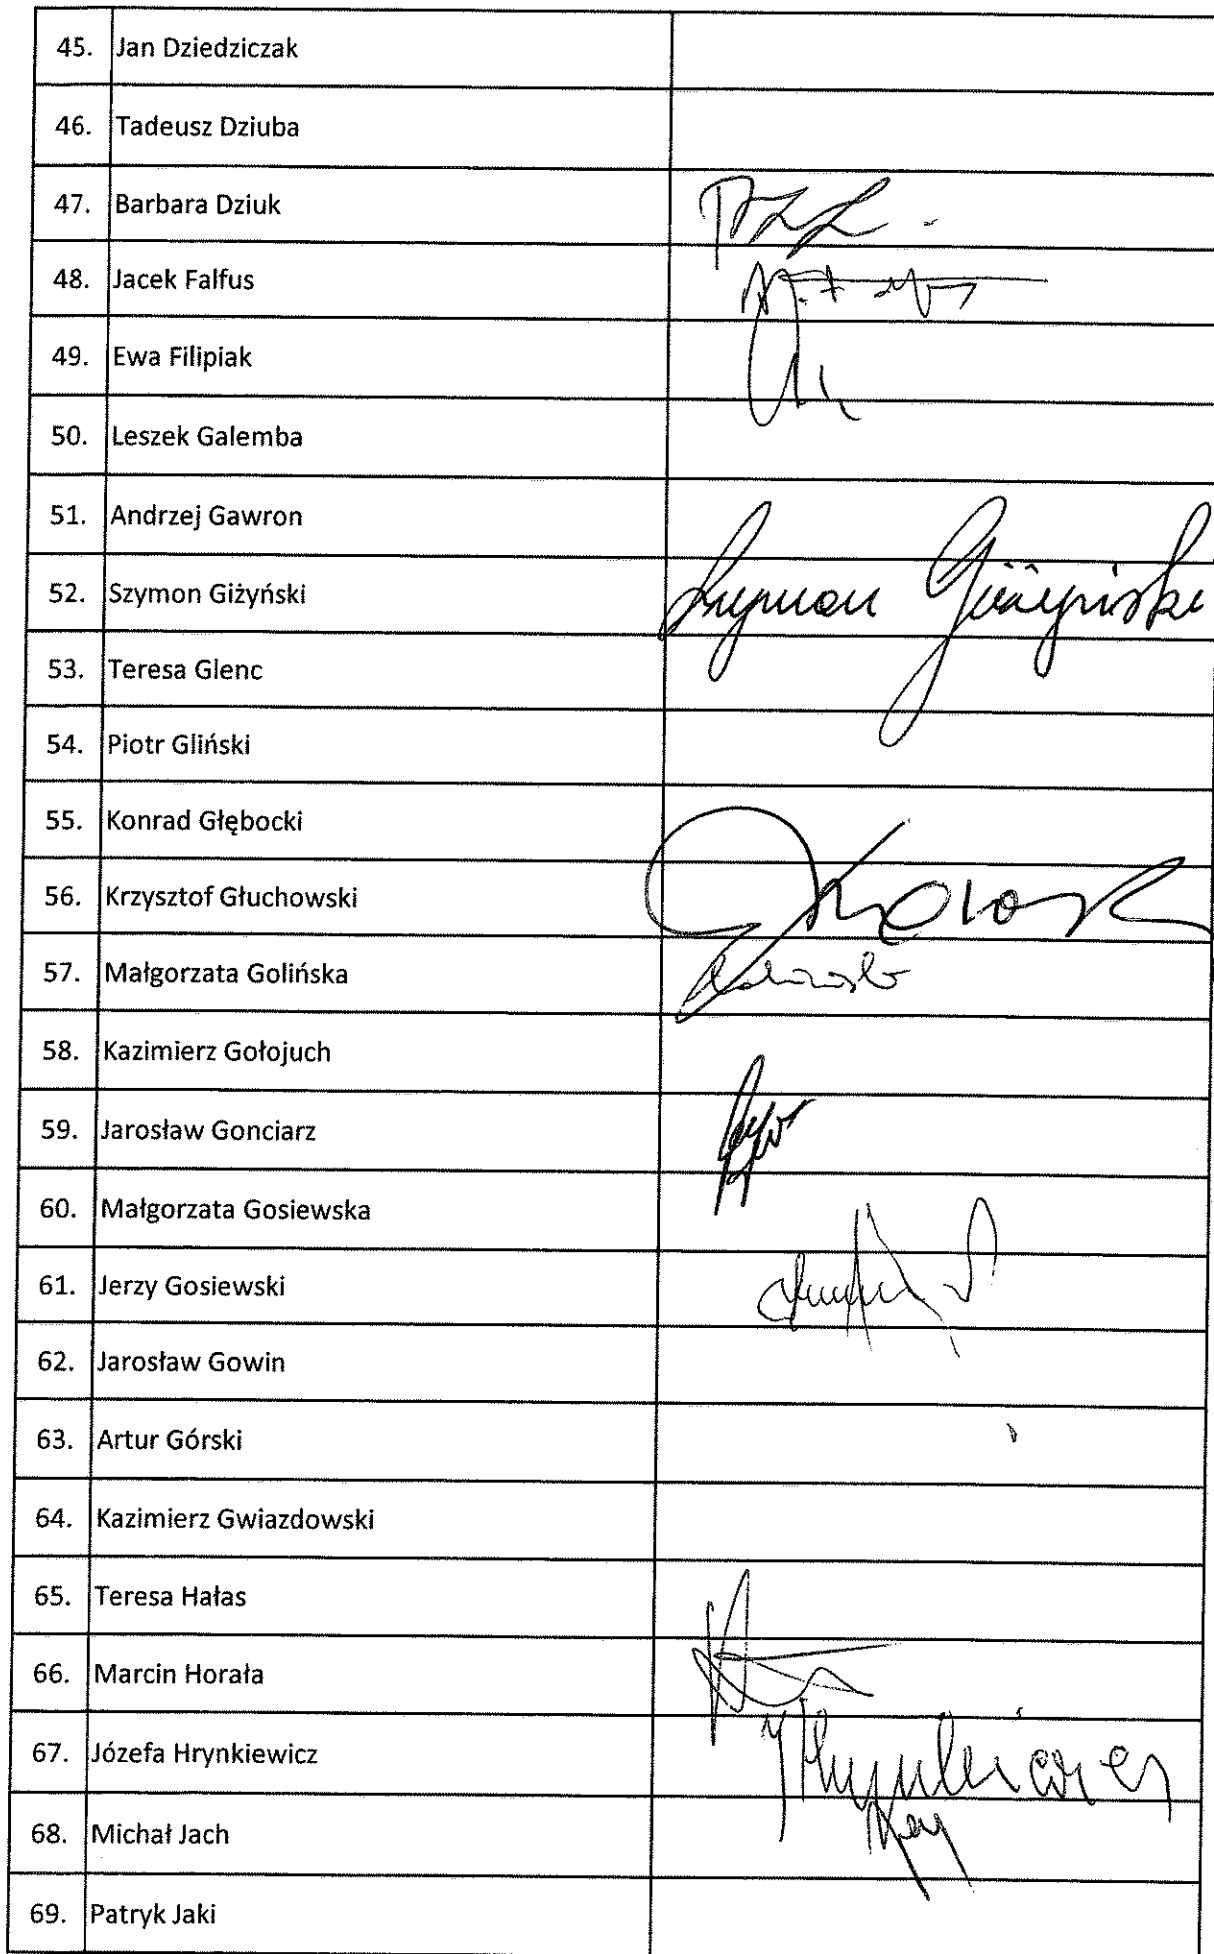 45. Jan Dziedziczak
46. Tadeusz Dziuba
47. Barbara Dziuk
48. Jacek Falfus
49. Ewa Filipiak
50. Leszek Galemba
51. Andrzej Gawron
52. Szymon Giżyński Szymon Giżyński
53. Teresa Glenc
54. Piotr Gliński
55. Konrad Głębocki
56. Krzysztof Głuchowski
57. Małgorzata Golińska
58. Kazimierz Gołojuch
59. Jarosław Gonciarz
60. Małgorzata Gosiewska
61. Jerzy Gosiewski
62. Jarosław Gowin
63. Artur Górski
64. Kazimierz Gwiazdowski
65. Teresa Hałas
66. Marcin Horała
67. Józefa Hrynkiewicz JHrynkiewicz
68. Michał Jach
69. Patryk Jaki